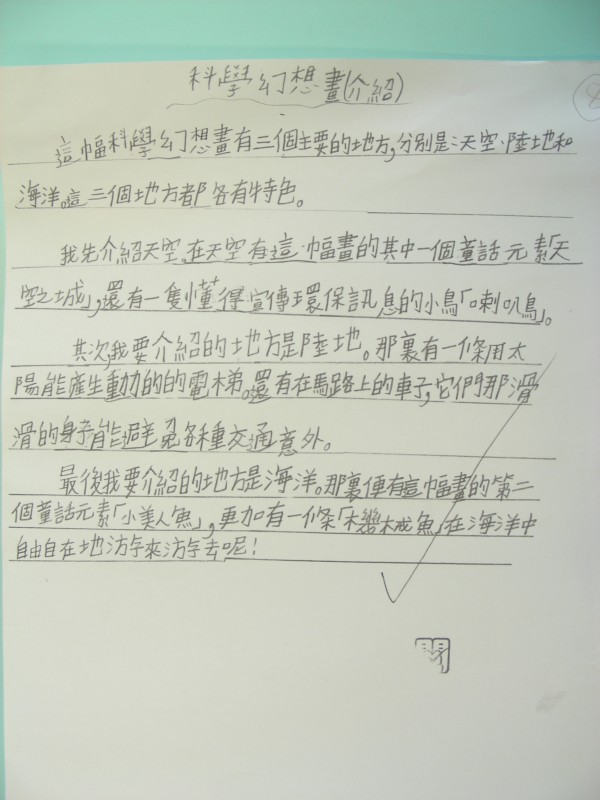 科學幻想畫(介紹)
這幅科學幻想畫有三個主要的地方,分別是:天空、陸地和
海洋。這三個地方都各有特色。
我先介紹天空。在天空有這幅畫的其中一個童話元素「天
空之城」,還有一隻懂得宣傳環保訊息的小鳥「喇叭鳥」。
其次,我要介紹的地方是陸地。那裏有一條用太
陽能產生動力的的電梯。還有在馬路上的車子,它們那滑
滑的身子能避免各種交通意外。
最後我要介紹的地方是海洋。那裏便有這幅畫的第二
個童話元素「小美人魚」,更加有一條「機械魚」在海洋中
自由自在地游來游去呢!
閱